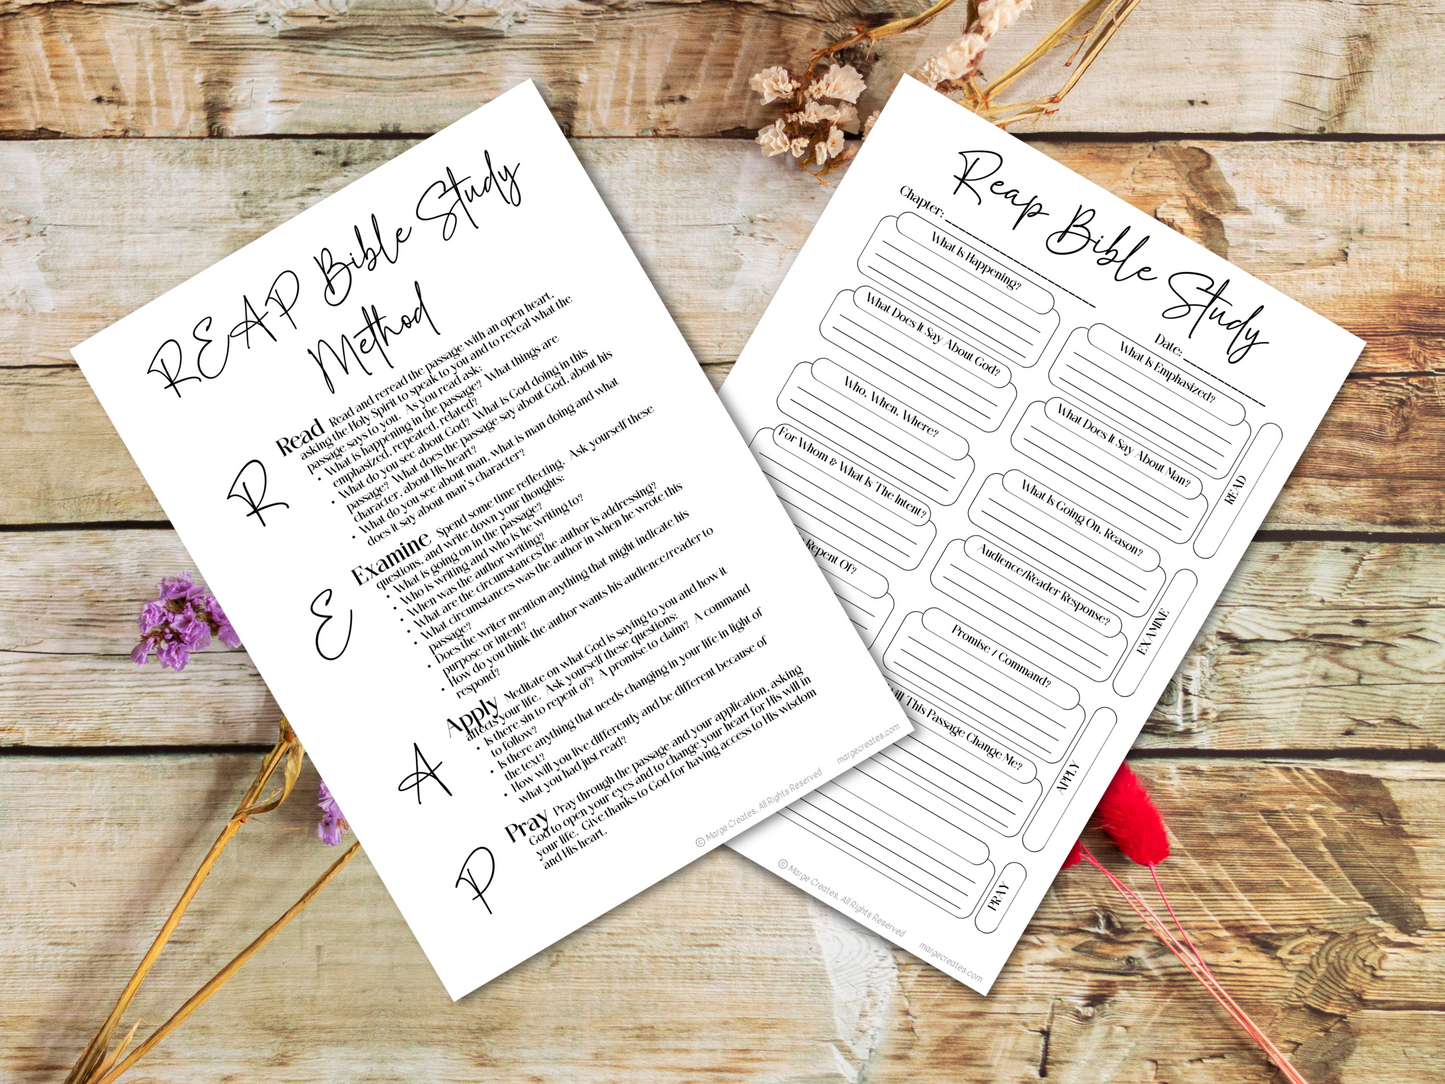 REAP Bible Study
Method
R
Read Read and reread the passage with an open heart,
asking the Holy Spirit to speak to you and to reveal what the
passage says to you. As you read ask:
• What is happening in the passage? What things are
emphasized, repeated, related?
• What do you see about God? What is God doing in this
passage? What does the passage say about God, about his
character, about His heart?
• What do you see about man, what is man doing and what
does it say about man's character?
E
Examine Spend some time reflecting. Ask yourself these
questions, and write down your thoughts:
• What is going on in the passage?
• Who is writing and who is he writing to?
• When was the author writing?
• What are the circumstances the author is addressing?
• What circumstances was the author in when he wrote this
passage?
• Does the writer mention anything that might indicate his
purpose or intent?
• How do you think the author wants his audience/reader to
respond?
A
Apply Meditate on what God is saying to you and how it
affects your life. Ask yourself these questions:
• Is there sin to repent of? A promise to claim? A command
to follow?
• Is there anything that needs changing in your life in light of
the text?
• How will you live differently and be different because of
what you had just read?
P
Pray Pray through the passage and your application, asking
God to open your eyes and to change your heart for His will in
your life. Give thanks to God for having access to His wisdom
and His heart.
© Marge Creates, All Rights Reserved
margecreates.com
Reap Bible Study
Chapter:
Date:
What Is Happening?
What Is Emphasized?
What Does It Say About God?
What Does It Say About Man?
READ
Who, When, Where?
What Is Going On, Reason?
For Whom & What Is The Intent?
Audience/Reader Response?
EXAMINE
Repent Of?
Promise / Command?
This Passage Change Me?
APPLY
PRAY
© Marge Creates, All Rights Reserved
margecreates.com